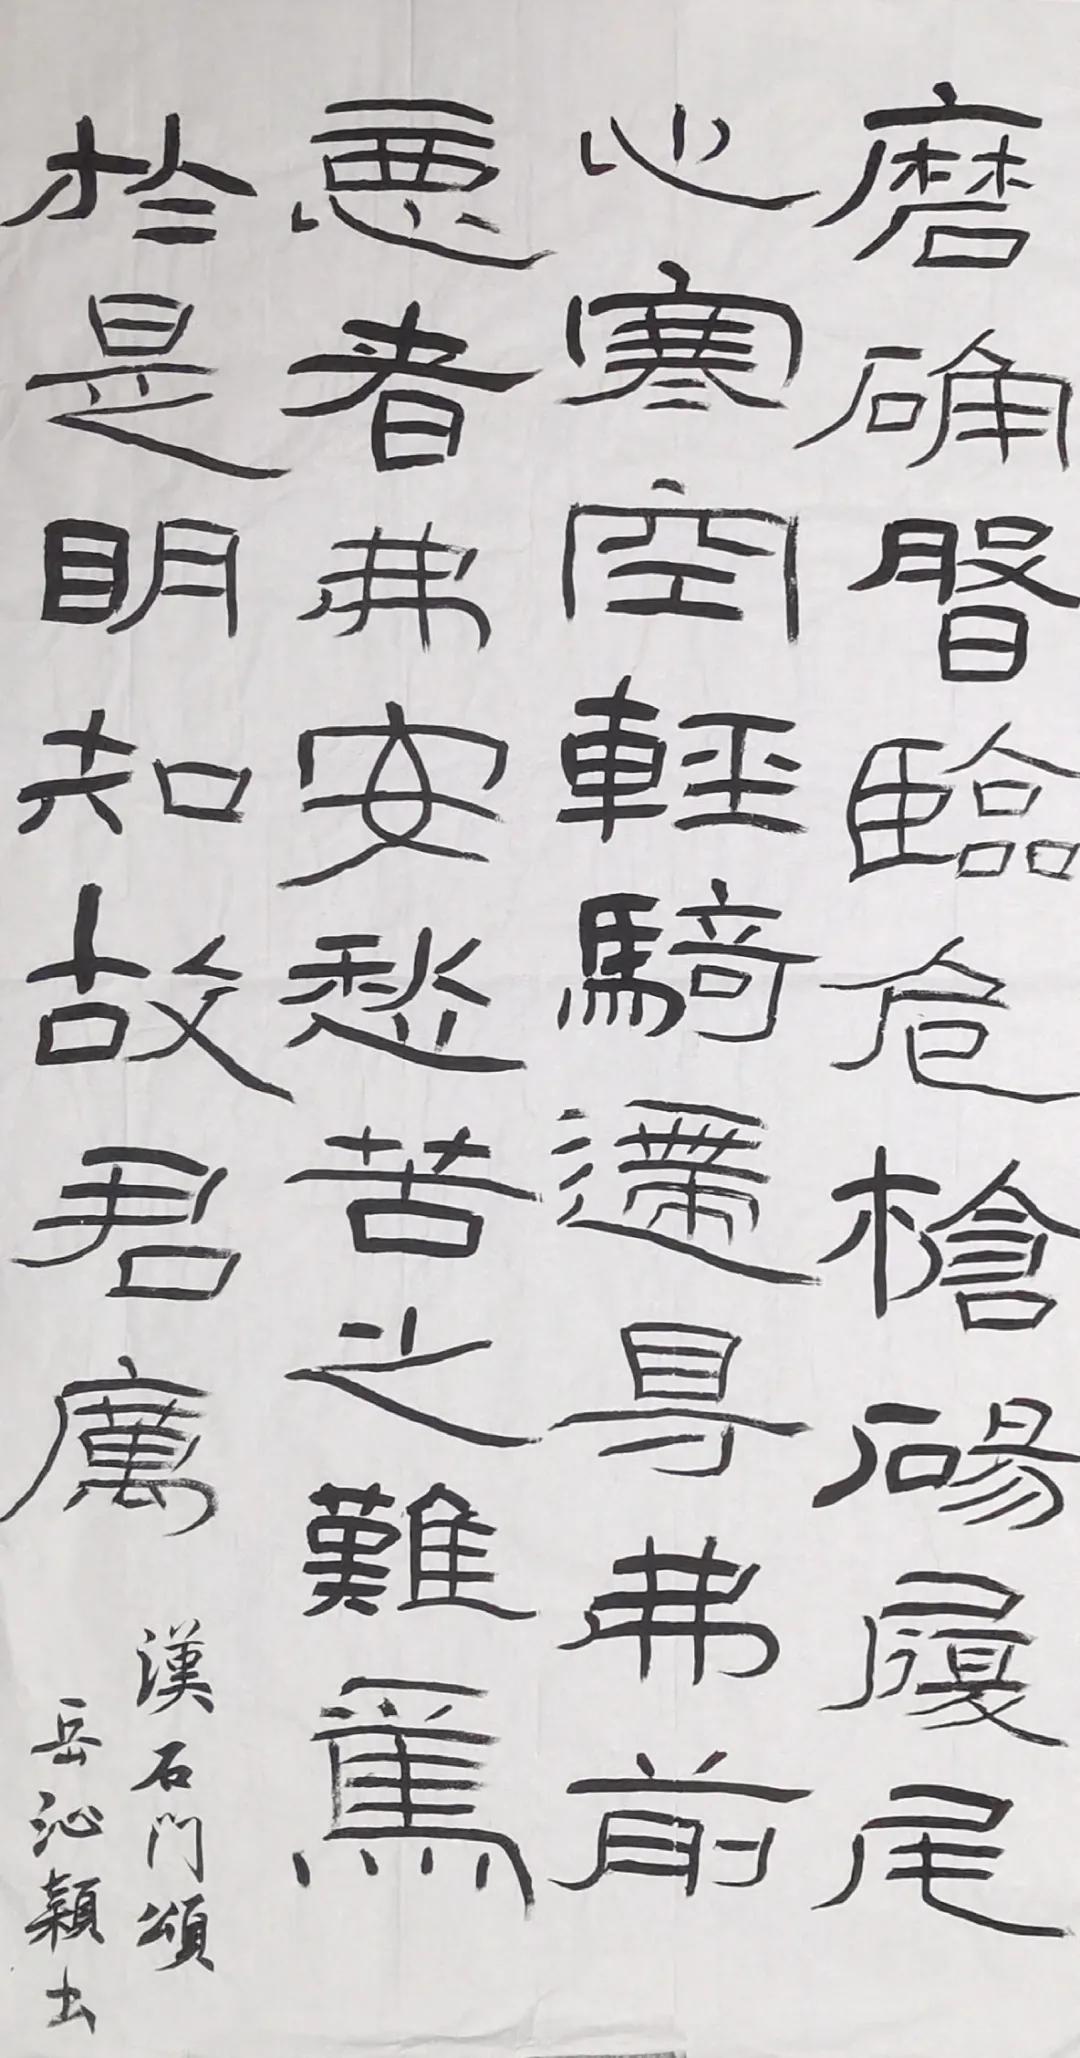 磨确磐臨危槍碭履尾
心寒空輕騎遰㝵弗前
惡者弗安愁苦之難焉
於是明知故君厲
漢石門頌
岳沁穎书